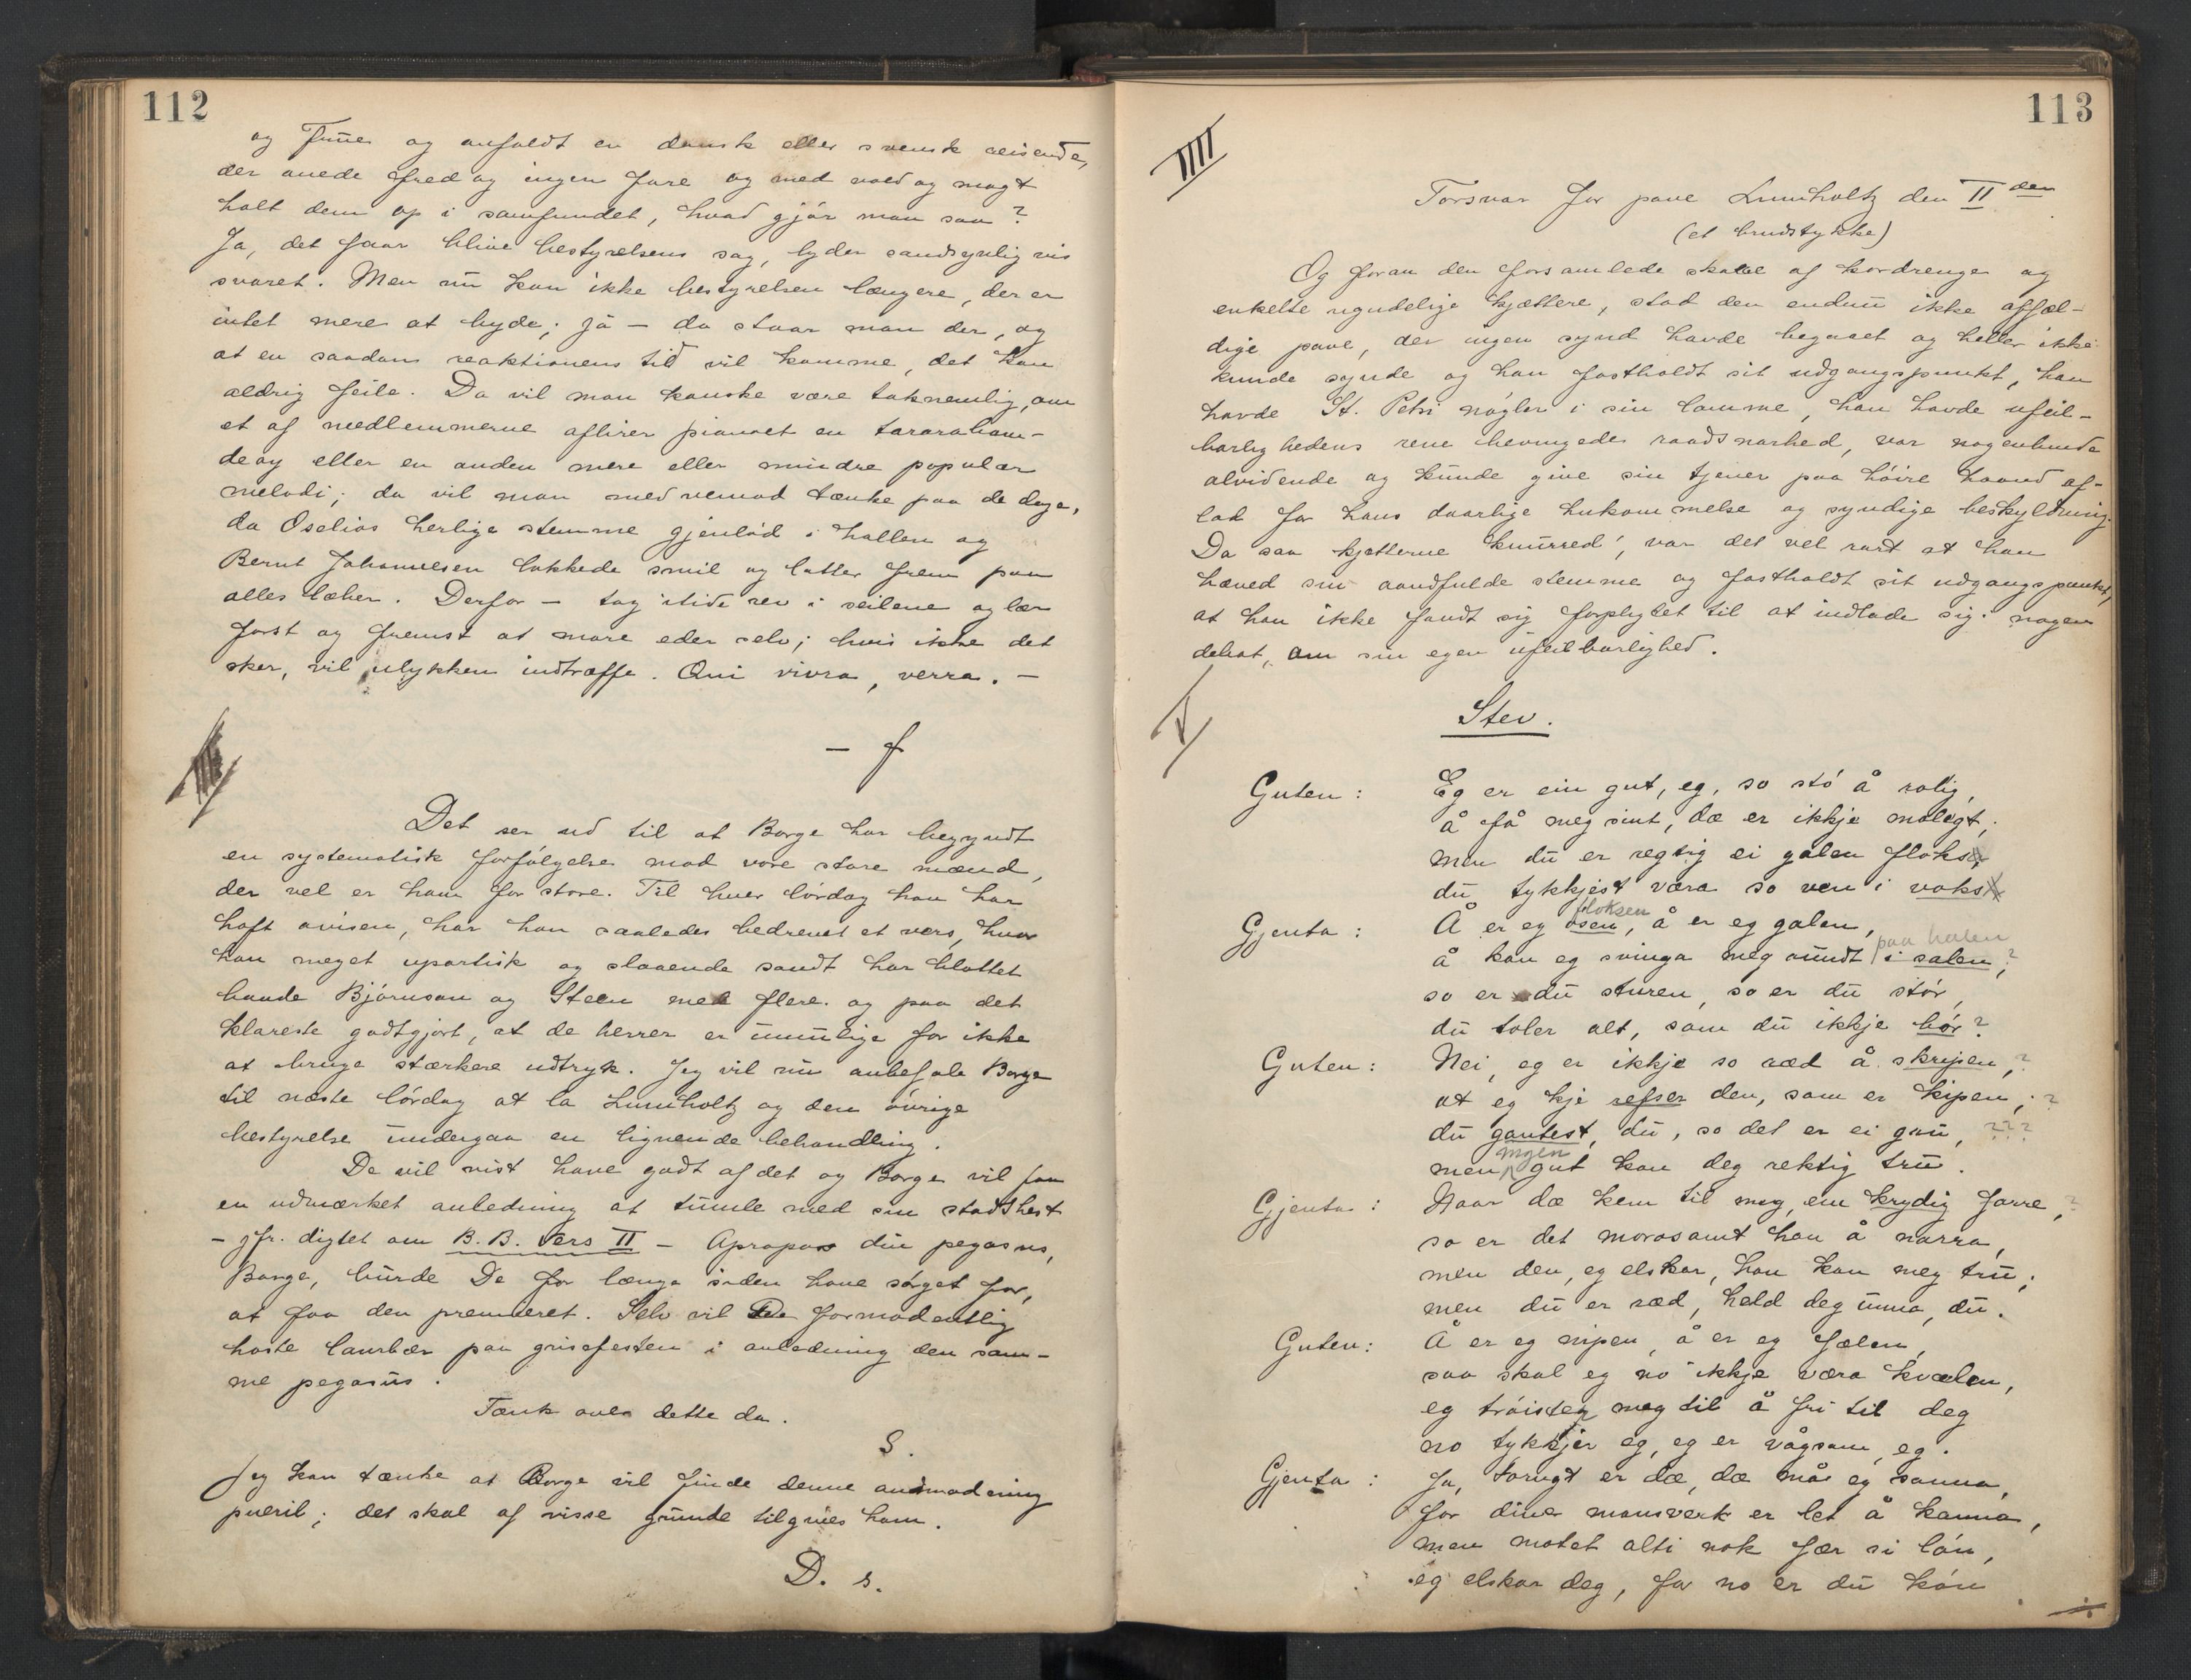 112
og Tine og anfaldt en dansk eller svensk reisende,
der anede fred og ingen fare og med vold og magt
halt dem op i samfundet, hvad gjør man saa?
Ja, det faar blive bestyrelsens sag, lyder sandsynligvis
svaret. Men nu kan ikke bestyrelsen længere, der er
intet mere at byde; ja — da staar man der, og
at en saadan reaktionens tid vil komme, det kan
aldrig feile. Da vil man kanske være taknemlig, om
et af medlemmerne aflirer pianoet en tararabom-
deay eller en anden mere eller mindre populær
melodi; da vil man med vemod tænke paa de dage,
da Oselios herlige stemme gjenlød i hallen og
Bernt Johannesen lokkede smil og latter frem paa
alles læber. Derfor — tag itide rev i seilene og lær
først og fremst at more eder selv; hvis ikke det
sker, vil ulykken indtræffe. Qui vivra, verra. —
— f
III
Det ser ud til at Borge har begyndt
en systematisk forfølgelse mod vore store mænd,
der vel er ham for store. Til hver lørdag han har
haft avisen, har han saaledes bedrevet et vers, hvor
han meget upartisk og slaaende sandt har blottet
baade Bjørnson og Steen med flere. og paa det
klareste godtgjort, at de herrer er umulige for ikke
at bruge stærkere udtryk. Jeg vil nu anbefale Borge
til næste lørdag at la Lumholtz og den øvrige
bestyrelse undergaa en lignende behandling.
De vil vist have godt af det og Borge vil faa
en udmærket anledning at tumle med sin stadshest
— jfr. digtet om B. B. Vers II — Apropos din pegasus,
Borge, burde De for længe siden have sørget for,
at faa den premieret. Selv vil De formodentlig
høste laurbær paa grisefesten i anledning den sam-
me pegasus.
Tænk over dette da.
S.
Jeg kan tænke at Borge vil finde denne anmodning
pueril; det skal af visse grunde tilgives ham.
D. s.
113
IIII
Forsvar for pave Lumholtz den II den
(et brudstykke)
Og foran den forsamlede skare af kordrenge og
enkelte ugudelige kjættere, stod den endnu ikke affæl-
dige pave, der ingen synd havde begaaet og heller ikke
kunde synde og han fastholdt sit udgangspunkt, han
havde St. Petri nøgler i sin lomme, han havde ufeil-
barlighedens rene bevingede raadsnarhed, var nogenlunde
alvidende og kunde give sin tjener paa høire haand af-
lad for hans daarlige hukommelse og syndige beskyldning.
Da saa kjætterne knurred', var det vel rart at han
hæved sin aandfulde stemme og fastholdt sit udgangspunkt,
at han ikke fandt sig forpligtet til at indlade sig i nogen
debat, om sin egen ufeilbarlighed.
V
Stev.
Guten: Eg er ein gut, eg, so stø å rolig,
å få meg sint, dæ er ikkje moligt;
men du er regtig ei galen floks,
du tykkjest væra so ven i voks
floksen
Gjenta: Å er eg osen, å er eg galen,
paa halen
å kan eg svinga meg rundt i salen;?
so er du sturen, so er du stør,
du toler alt, som du ikkje bør?
Guten: Nei, eg er ikkje so ræd å skripen,?
at eg kje refser den, som er kipen;?
du gantest, du, so det er ei gru, ???
ingen
men gut kan deg rektig tru.
Gjenta: Naar dæ kem til meg ein krydig farre,?
so er det morosamt han å narra,
men den, eg elskar, han kan meg tru;
men du er ræd, held deg unna, du.
Guten: Å er eg nipen, å er eg fælen,
saa skal eg no ikkje væra kvælen,
eg trøister meg til å fri til deg
no tykkjer eg, eg er vågsam, eg.
Gjenta: Ja, torugt er dæ, dæ må eg sanna,
for diner mansverk er let å kanna,
men motet alti nok fær si løn,
eg elskar deg, for no er du køn